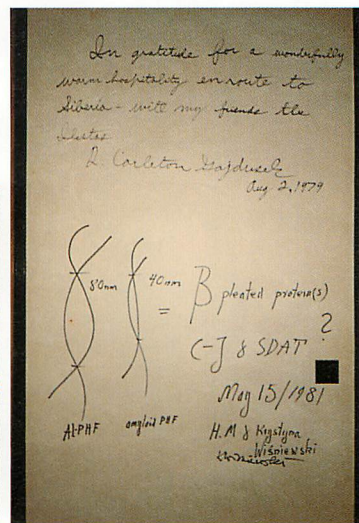 In gratitude for a wonderfully
warm hospitality enroute to
Siberia - with my friends the
D. Carleton Gajdusek
Aug 2, 1979
80nm
40nm
= β pleated protein(s)
?
C-J & SDAT
May 15/1981
Al-PHF
amyloid PHF
H.M & Krystyna
Wiśniewski